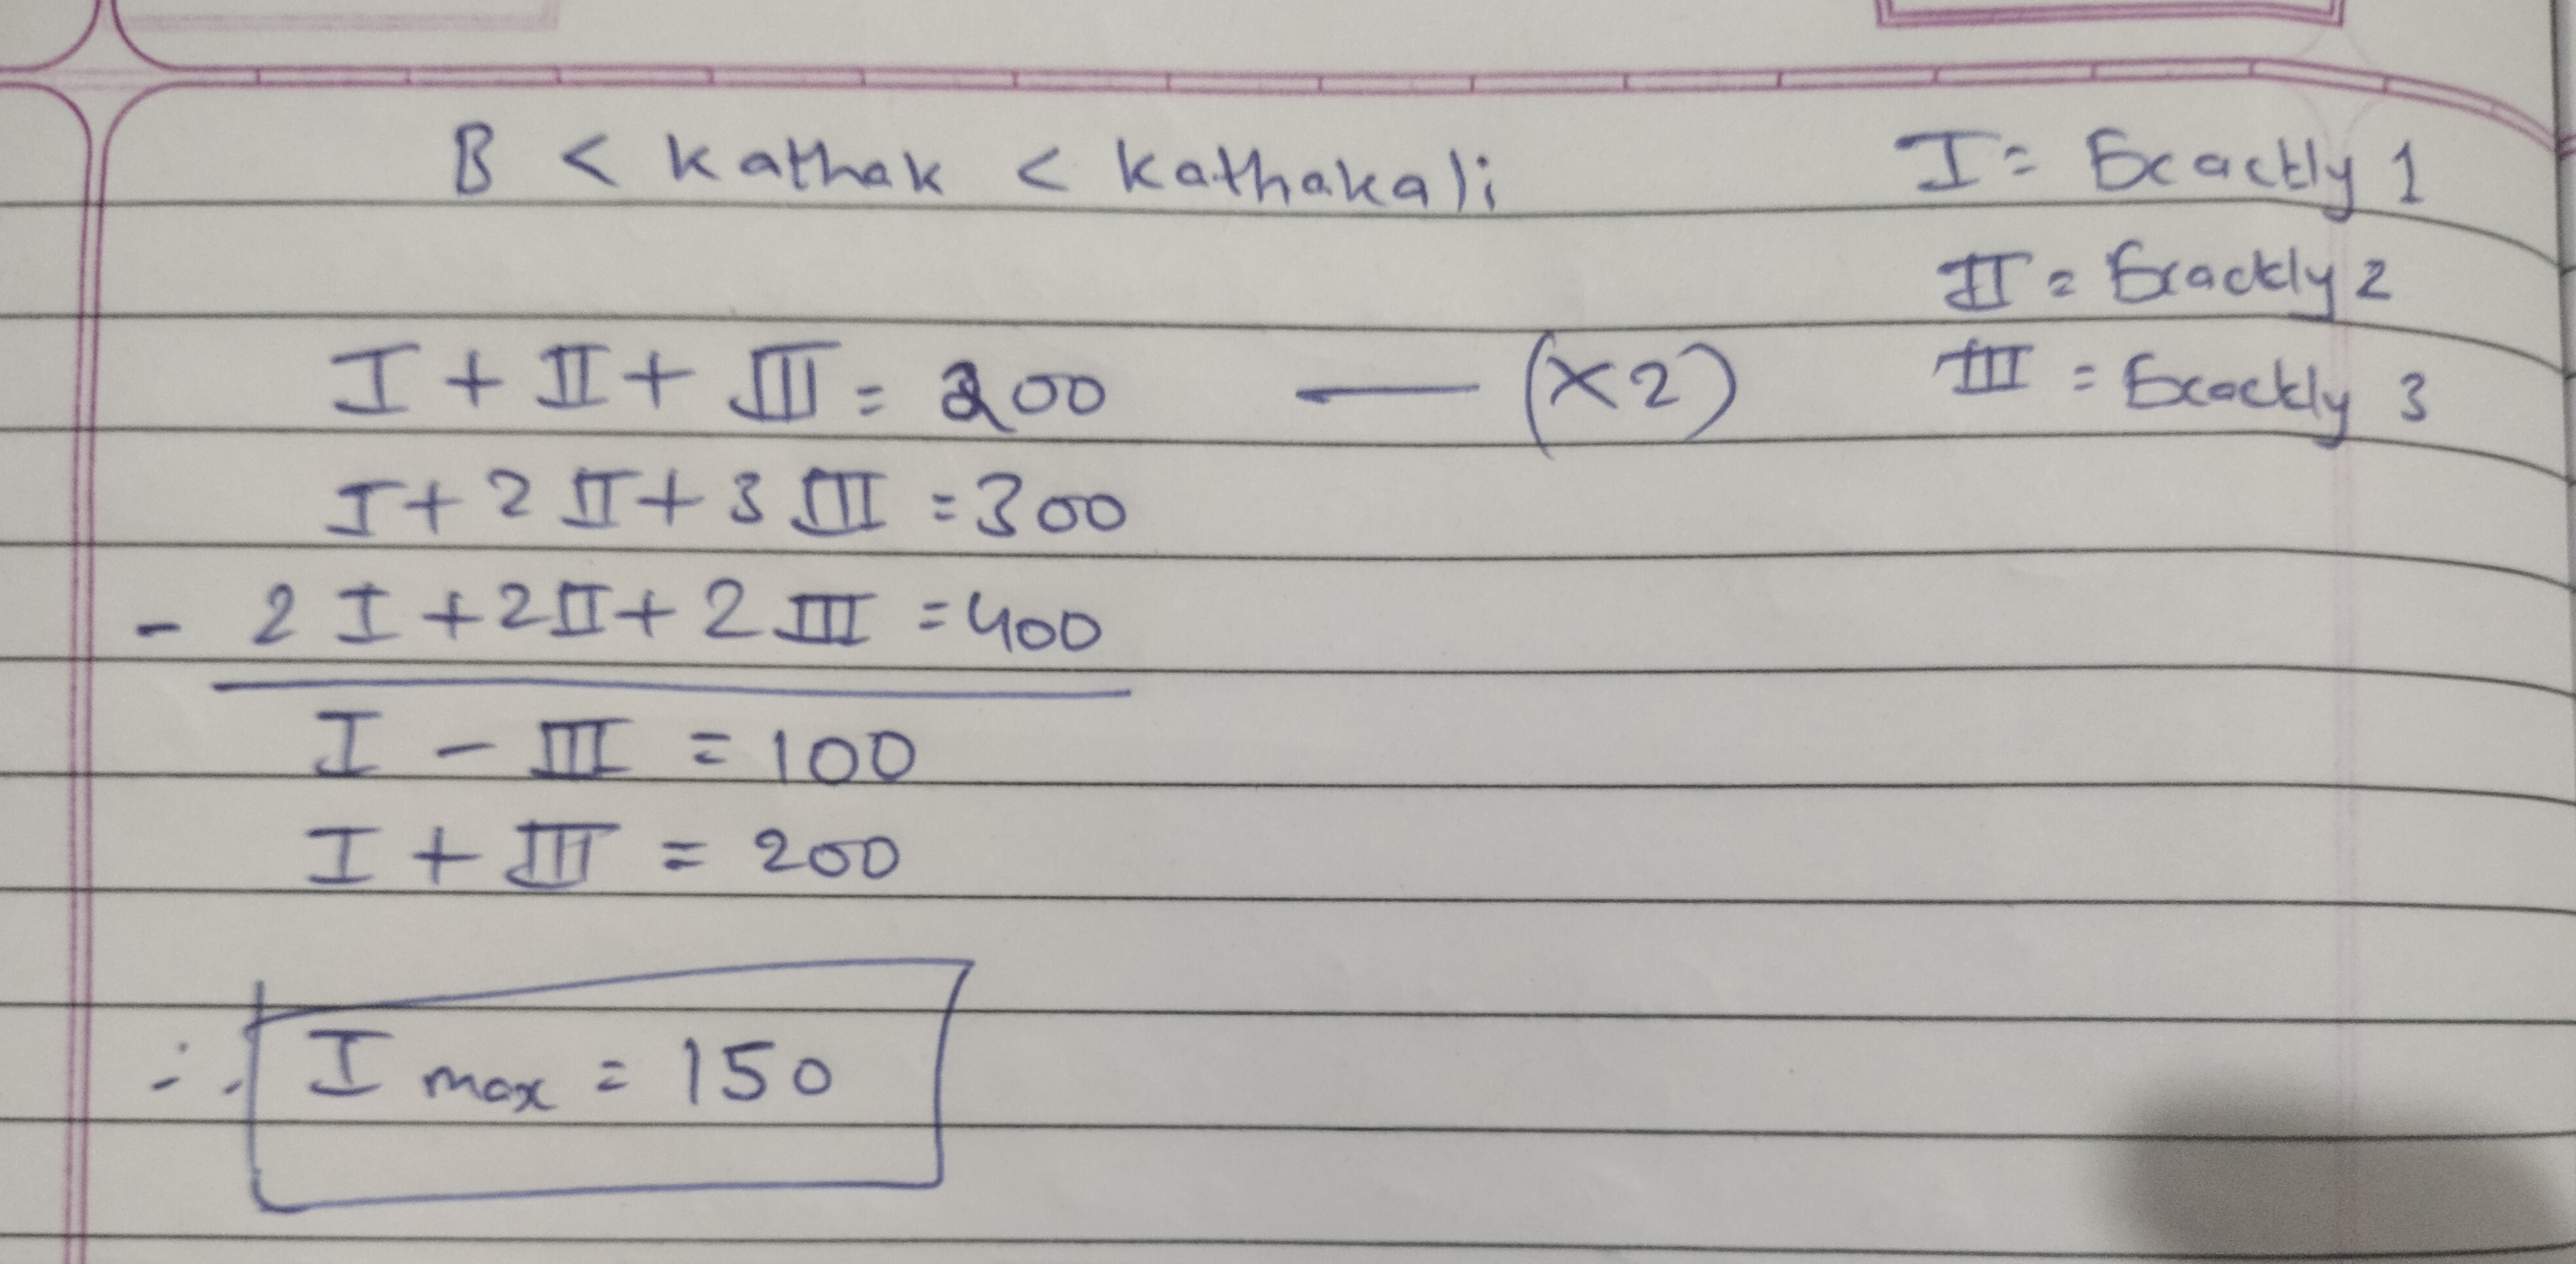 B < Kathak < Kathakali
I = Exactly 1
II = Exactly 2
I + II + III = 200 — (×2)
III = Exactly 3
I + 2 II + 3 III = 300
- 2 I + 2 II + 2 III = 400
I - III = 100
I + III = 200
∴ I max = 150